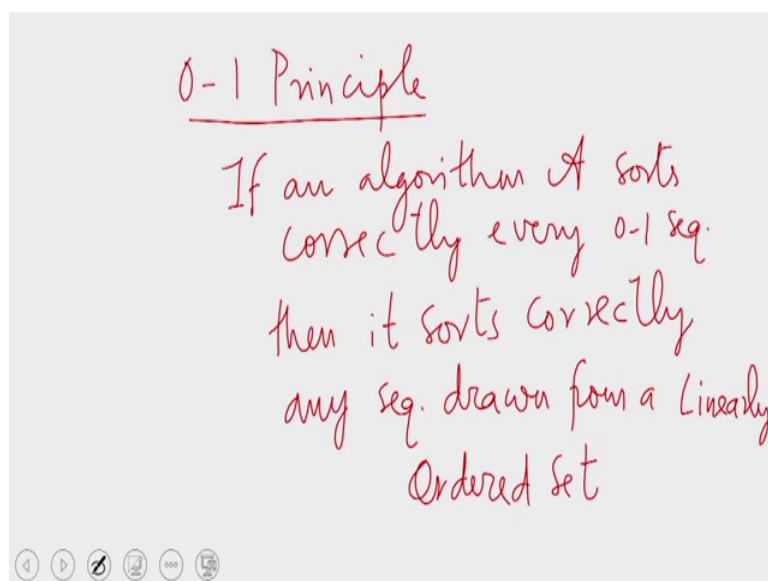 0-1 Principle
If an algorithm A sorts
correctly every 0-1 seq.
then it sorts correctly
any seq. drawn from a Linearly
Ordered Set